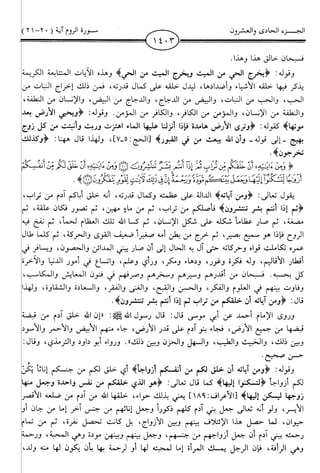 الجـــزء الحادى والعشرون
١٤٠٣
سـورة الروم آية (٢٠-٢١)
فسبحان خالق هذا وهذا.
وقوله: ﴿يخرج الحي من الميت ويخرج الميت من الحي﴾ وهذه الآيات المتتابعة الكريمة
يذكر فيها خلقه الأشياء وأضدادها، ليدل خلقه على كمال قدرته، فمن ذلك إخراج النبات من
الحب، والحب من النبات، والبيض من الدجاج، والدجاج من البيض، والإنسان من النطفة،
والنطفة من الإنسان، والمؤمن من الكافر، والكافر من المؤمن. وقوله: ﴿ويحيي الأرض بعد
موتها﴾ كقوله: ﴿وترى الأرض هامدة فإذا أنزلنا عليها الماء اهتزت وربت وأنبتت من كل زوج
بهيج - إلى قوله - وأن الله يبعث من في القبور﴾ [الحج: ٥-٧]، ولهذا قال ههنا: ﴿وكذلك
تخرجون﴾.
﴿وَمِنْ ءَايَٰتِهِۦٓ أَنْ خَلَقَكُم مِّن تُرَابٍ ثُمَّ إِذَآ أَنتُم بَشَرٌ تَنتَشِرُونَ ۝ وَمِنْ ءَايَٰتِهِۦٓ أَنْ خَلَقَ لَكُم مِّنْ أَنفُسِكُمْ
أَزْوَٰجًا لِّتَسْكُنُوٓا۟ إِلَيْهَا وَجَعَلَ بَيْنَكُم مَّوَدَّةً وَرَحْمَةً إِنَّ فِى ذَٰلِكَ لَءَايَٰتٍ لِّقَوْمٍ يَتَفَكَّرُونَ ۝﴾
يقول تعالى: ﴿ومن آياته﴾ الدالة على عظمته وكمال قدرته، أنه خلق أباكم آدم من تراب،
﴿ثم إذا أنتم بشر تنتشرون﴾ فأصلكم من تراب، ثم من ماء مهين، ثم تصور فكان علقة، ثم
مضغة، ثم صار عظاماً شكله على شكل الإنسان، ثم كسا الله تلك العظام لحماً، ثم نفخ فيه
الروح فإذا هو سميع بصير، ثم خرج من بطن أمه صغيراً ضعيف القوى والحركة، ثم كلما طال
عمره تكاملت قواه وحركاته حتى آل به الحال إلى أن صار يبني المدائن والحصون، ويسافر في
أقطار الأقاليم، وله فكرة وغور، ودهاء ومكر، ورأي وعلم، واتساع في أمور الدنيا والآخرة
كل بحسبه. فسبحان من أقدرهم وسيرهم وسخرهم وصرفهم في فنون المعايش والمكاسب،
وفاوت بينهم في العلوم والفكر، والحسن والقبح، والغنى والفقر، والسعادة والشقاوة، ولهذا
قال: ﴿ومن آياته أن خلقكم من تراب ثم إذا أنتم بشر تنتشرون﴾.
وروى الإمام أحمد عن أبي موسى قال: قال رسول الله ﷺ: «إن الله خلق آدم من قبضة
قبضها من جميع الأرض، فجاء بنو آدم على قدر الأرض، جاء منهم الأبيض والأحمر والأسود
وبين ذلك، والخبيث والطيب، والسهل والحزن وبين ذلك». ورواه أبو داود والترمذي، وقال:
حسن صحيح.
وقوله: ﴿ومن آياته أن خلق لكم من أنفسكم أزواجاً﴾ أي خلق لكم من جنسكم إناثاً يَكُنّ
لكم أزواجاً ﴿لتسكنوا إليها﴾ كما قال تعالى: ﴿هو الذي خلقكم من نفس واحدة وجعل منها
زوجها ليسكن إليها﴾ [الأعراف: ١٨٩] يعني بذلك حواء، خلقها الله من آدم من ضلعه الأقصر
الأيسر، ولو أنه تعالى جعل بني آدم كلهم ذكوراً وجعل إناثهم من جنس آخر إما من جان أو
حيوان، لما حصل هذا الإئتلاف بينهم وبين الأزواج، بل كانت تحصل نفرة، ثم من تمام
رحمته ببني آدم أن جعل أزواجهم من جنسهم، وجعل بينهم وبينهن مودة وهي المحبة، ورحمة
وهي الرأفة، فإن الرجل يمسك المرأة إما لمحبته لها أو لرحمة بها بأن يكون لها منه ولد،